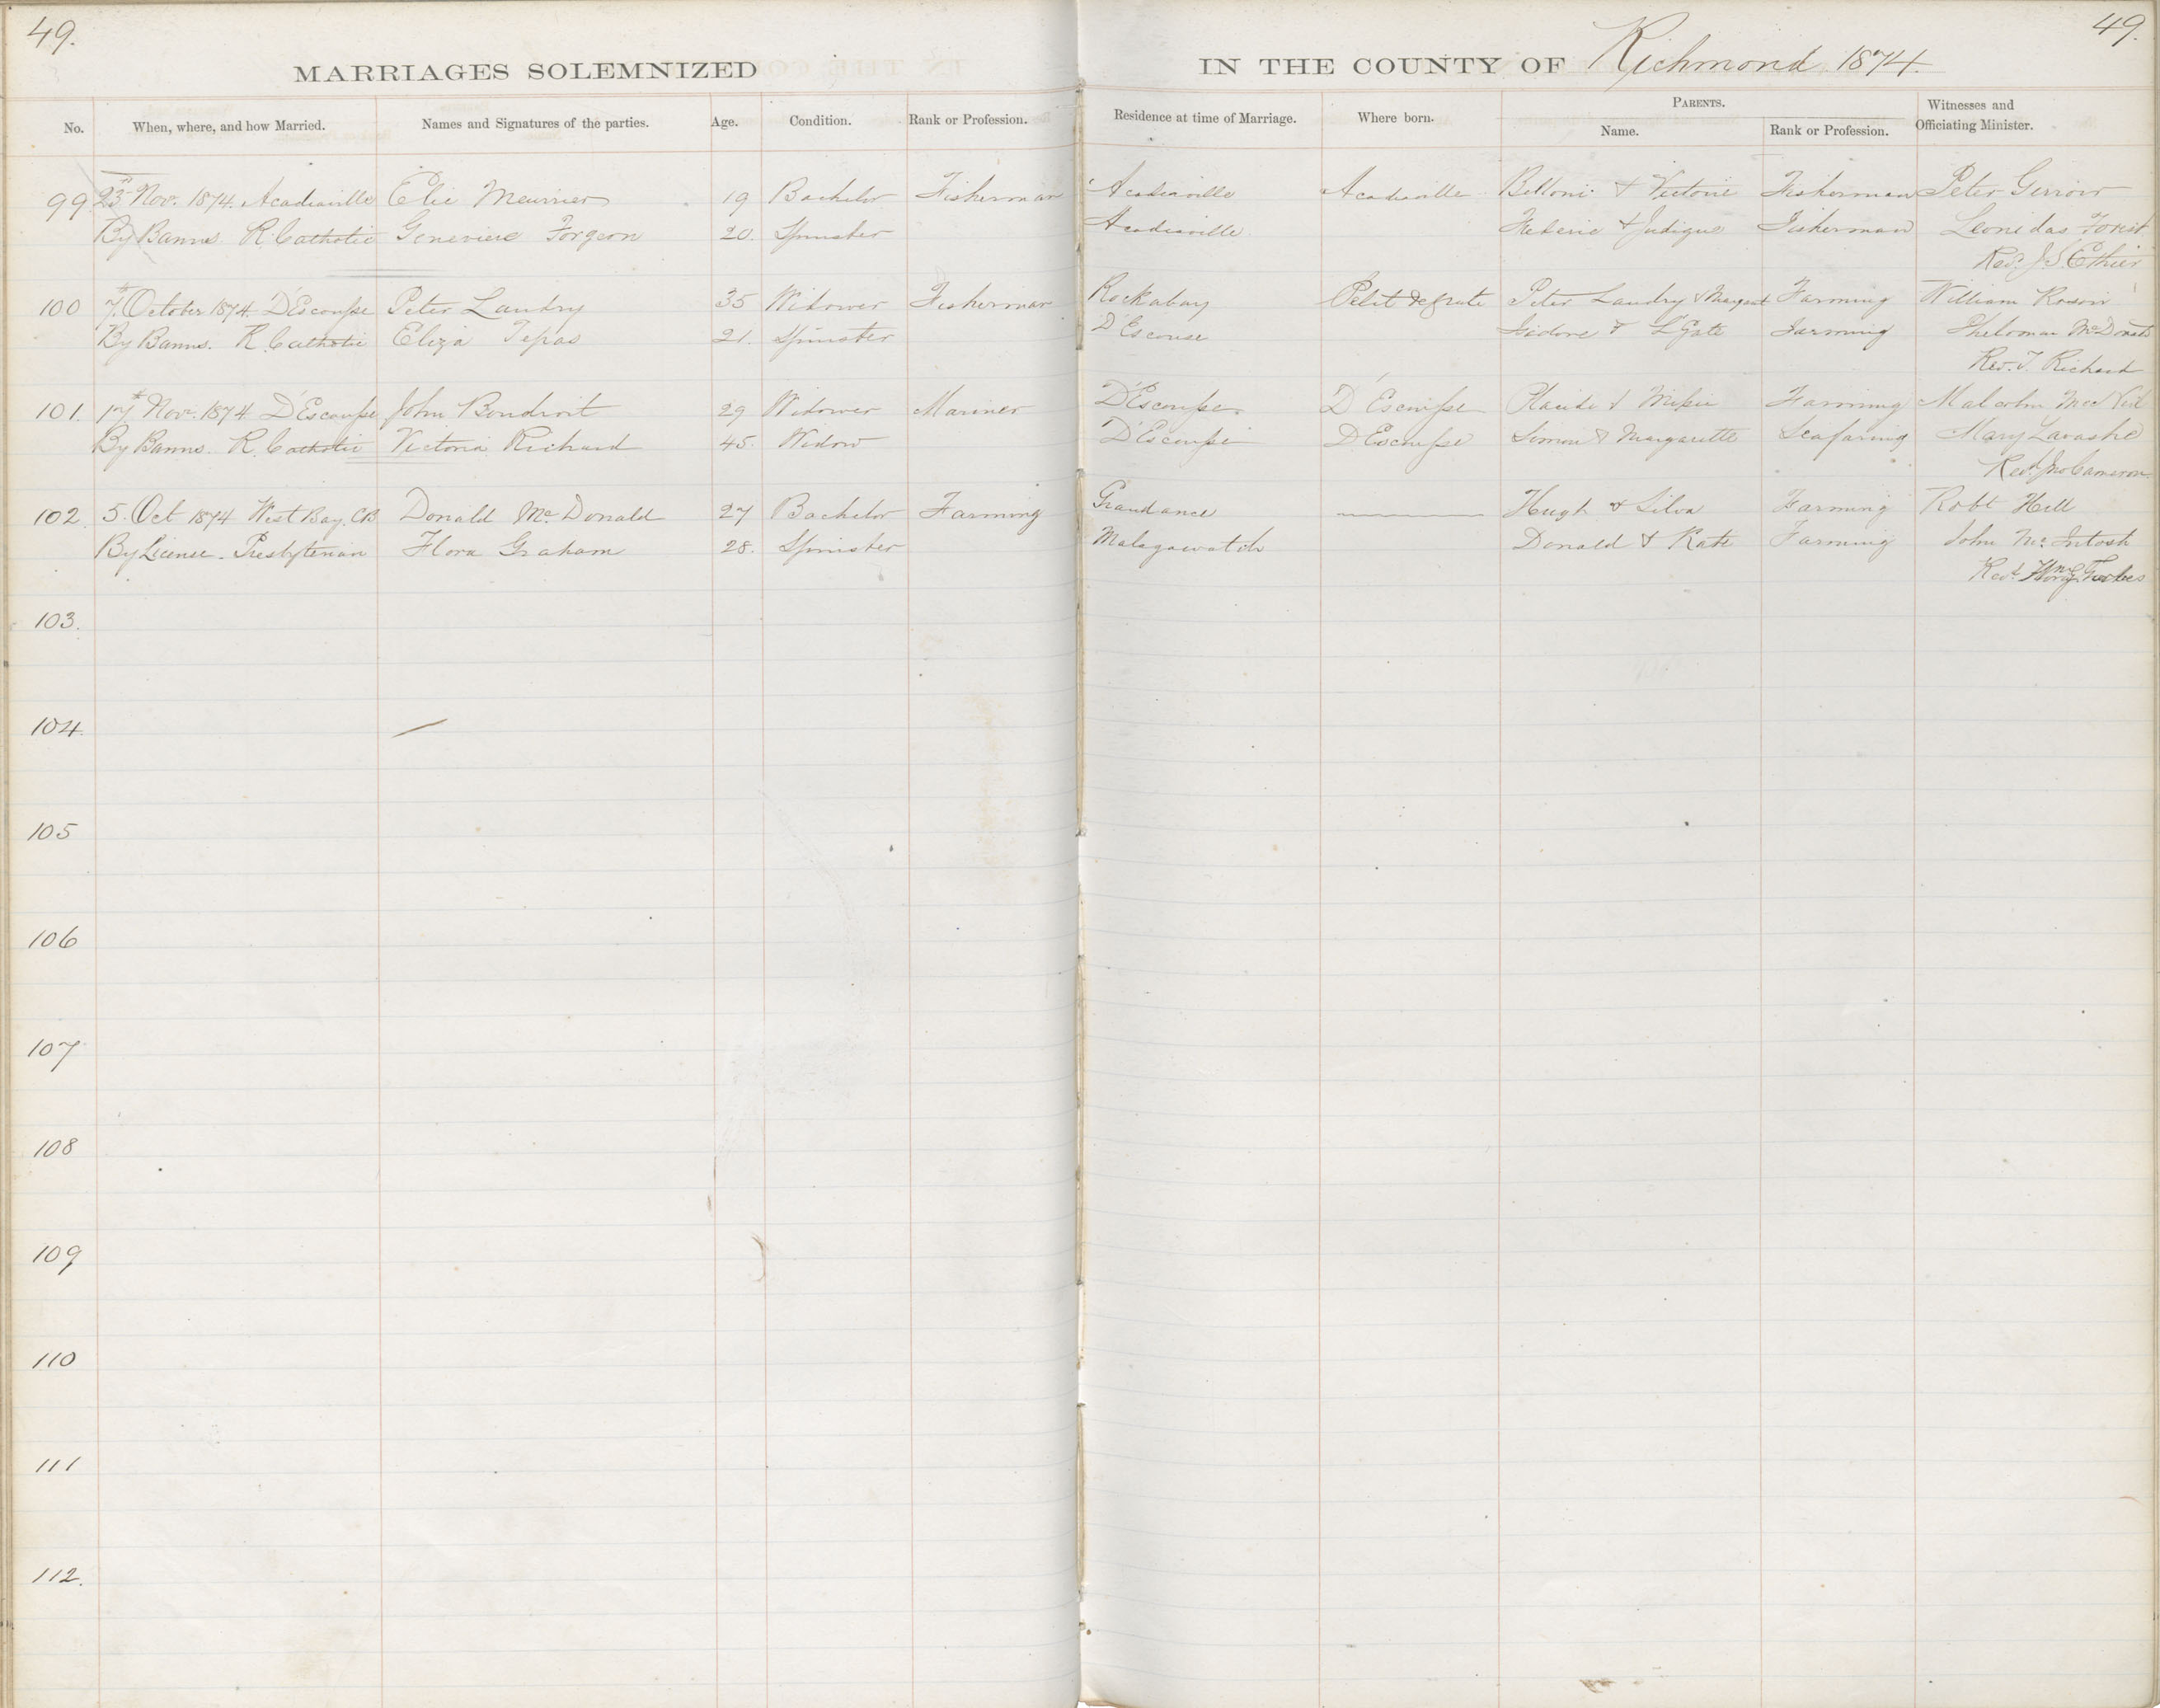 49.
49.
MARRIAGES SOLEMNIZED IN THE COUNTY OF Richmond 1874.
No. When, where, and how Married. Names and Signatures of the parties. Age. Condition. Rank or Profession. Residence at time of Marriage. Where born. PARENTS. Name. Rank or Profession. Witnesses and Officiating Minister.
99 23rd Nov. 1874. Acadiaville Elie Meunier 19 Bachelor Fisherman Acadiaville Acadiaville Belloni & Victorie Fisherman Peter Gerroir
By Banns R. Catholic Genevieve Forgeron 20. Spinster Acadiaville. & Fisherman Leonidas Forest
Rev. J. S. Ethier
100 7th October 1874 D'Escousse Peter Landry 35 Widower Fisherman Rockabay Petit de grate Peter Landry & Margaret Farming William
By Banns. R. Catholic Eliza 21. Spinster D'Escouse Isidore & Farming McDonald
Rev. J. Richard
101. 17th Nov. 1874 D'Escousse John Boudroit 29 Widower Mariner D'Escousse. D'Escousse Placide & Farming Malcolm
By Banns. R. Catholic Victoria Richard 45. Widow D'Escousse D'Escousse Simon & Margarette Seafaring Mary Lavashe
Revd. Jno Cameron
102. 5. Oct 1874 West Bay, CB Donald Mc Donald 27 Bachelor Farming Grandance Hugh & Silva Farming Robt Hill
By License. Presbyterian Flora Graham 28. Spinster Malagawatch Donald & Kate Farming John Mc Intosh
Revd. Forbes
103.
104.
105
106
107
108
109
110
111
112.